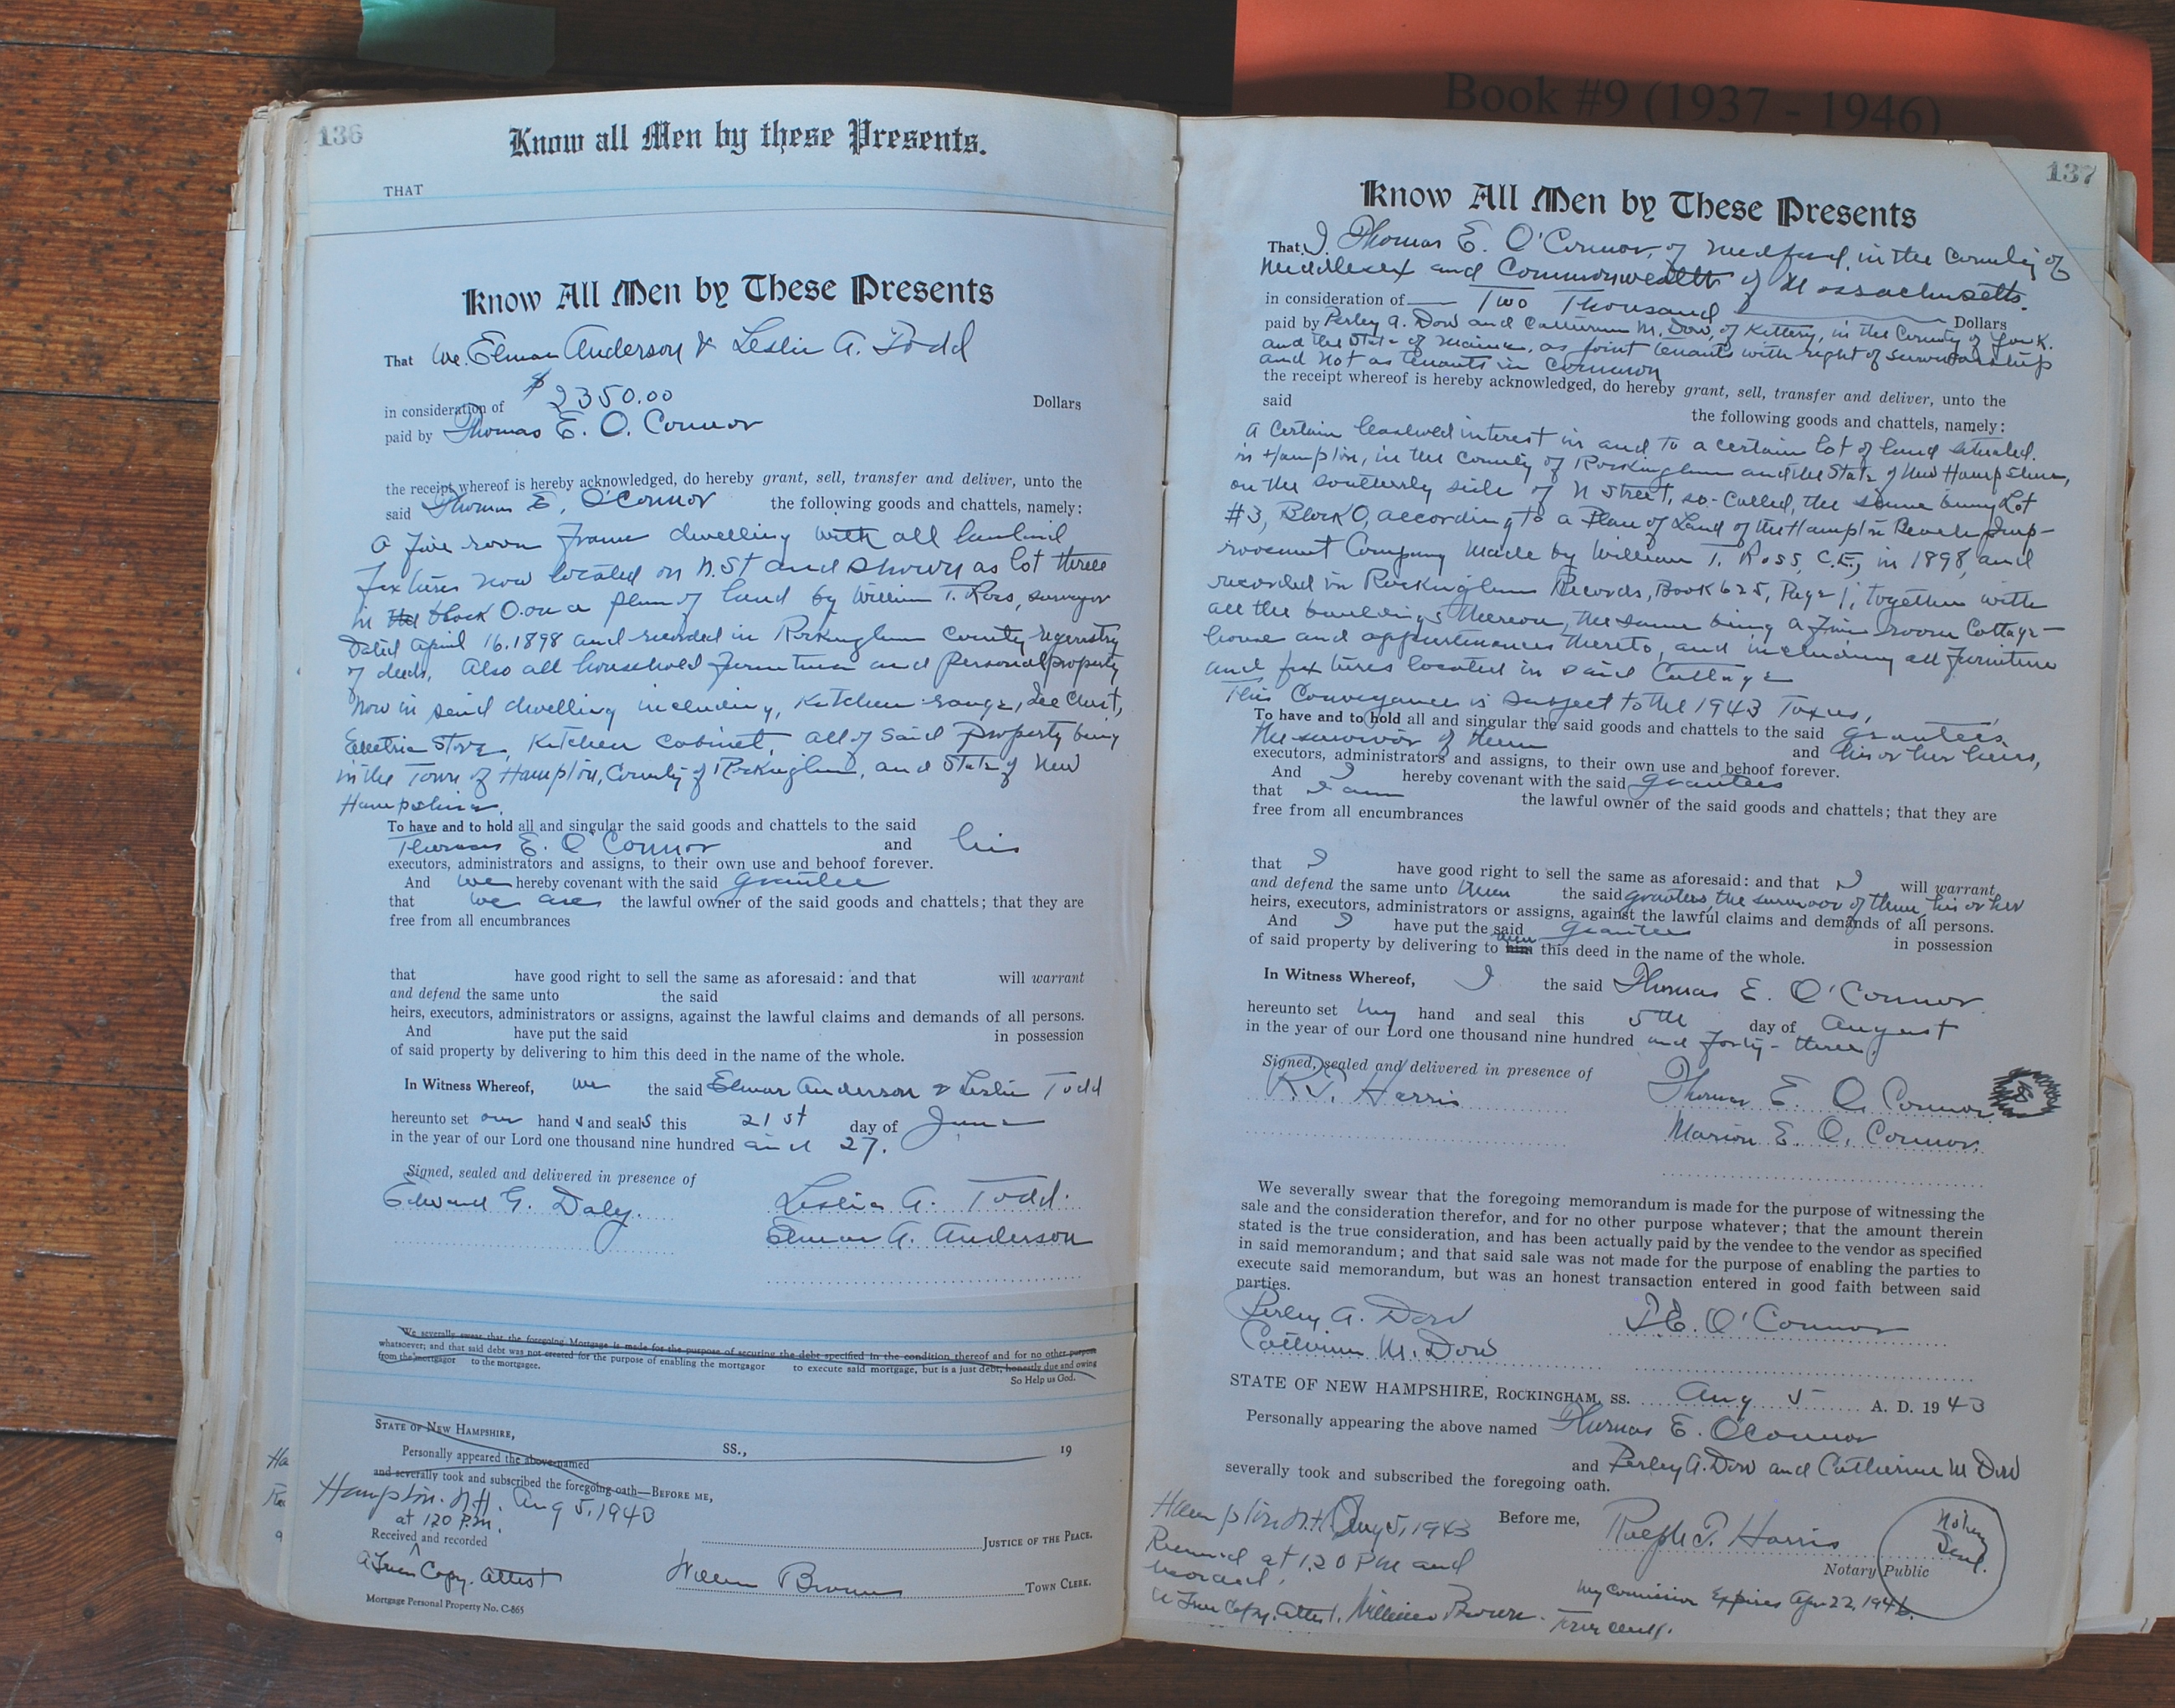 Book #9 (1937 - 1946)
136
Know all Men by these Presents.
THAT
Know All Men by These Presents
That We. Elmar Anderson & Leslie A. Todd
in consideration of $2350.00 Dollars
paid by Thomas E. O. Connor
the receipt whereof is hereby acknowledged, do hereby grant, sell, transfer and deliver, unto the
said Thomas E. O'Connor the following goods and chattels, namely:
A five room frame dwelling with all
fixtures now located on N. St and shown as lot three
in the block O. on a plan of land by William T. Ross, surveyor
Dated April 16. 1898 and recorded in Rockingham County regerestry
of deeds. Also all household furniture and personal property
Now in said dwelling including, Kitchen range, Ice Chest,
Electric Stove, Kitchen Cabinet, all of said property being
in the Town of Hampton, County of Rockingham, and State of New
Hampshire.
To have and to hold all and singular the said goods and chattels to the said
Thomas E. O'Connor and his
executors, administrators and assigns, to their own use and behoof forever.
And we hereby covenant with the said grantee
that we are the lawful owner of the said goods and chattels; that they are
free from all encumbrances
that have good right to sell the same as aforesaid: and that will warrant
and defend the same unto the said
heirs, executors, administrators or assigns, against the lawful claims and demands of all persons.
And have put the said in possession
of said property by delivering to him this deed in the name of the whole.
In Witness Whereof, we the said Elmar Anderson & Leslie Todd
hereunto set our hand s and seals this 21st day of June
in the year of our Lord one thousand nine hundred and 27.
Signed, sealed and delivered in presence of
Edward G. Daley. Leslie A. Todd.
Elmar A. Anderson
We severally swear that the foregoing Mortgage is made for the purpose of securing the debt specified in the condition thereof and for no other purpose
whatsoever; and that said debt was not created for the purpose of enabling the mortgagor to execute said mortgage, but is a just debt, honestly due and owing
from the mortgagor to the mortgagee.
So Help us God.
STATE OF NEW HAMPSHIRE,
SS., 19
Personally appeared the above-named
and severally took and subscribed the foregoing oath—BEFORE ME,
Hampton. N.H. Aug 5, 1943
at 1 20 P.M.
Received and recorded JUSTICE OF THE PEACE.
A True Copy. Attest William Brown TOWN CLERK.
Mortgage Personal Property No. C-865
137
Know All Men by These Presents
That I, Thomas E. O'Connor, of Medford, in the County of
Middlesex and Commonwealth of Massachusetts.
in consideration of Two Thousand Dollars
paid by Perley A. Dow and Catherine M. Dow, of Kittery, in the County of York.
and the State of Maine, as joint tenants with right of survivorship
and not as tenants in common
the receipt whereof is hereby acknowledged, do hereby grant, sell, transfer and deliver, unto the
said the following goods and chattels, namely:
A certain leasehold interest in and to a certain lot of land situated.
in Hampton, in the County of Rockingham and the State of New Hampshire,
on the southerly side of N Street, so-called, the same being Lot
#3, Block O, according to a Plan of Land of the Hampton Beach Imp-
rovement Company made by William T. Ross, C.E., in 1898, and
recorded in Rockingham Records, Book 625, Page 1, together with
all the buildings thereon, the same being a five room Cottage-
house and appurtenances thereto, and including all furniture
and fixtures located in said Cottage
This Conveyance is subject to the 1943 Taxes,
To have and to hold all and singular the said goods and chattels to the said grantees,
the survivor of them and his or her heirs,
executors, administrators and assigns, to their own use and behoof forever.
And I hereby covenant with the said grantees
that I am the lawful owner of the said goods and chattels; that they are
free from all encumbrances
that I have good right to sell the same as aforesaid: and that I will warrant
and defend the same unto them the said grantees, the survivor of them, his or her
heirs, executors, administrators or assigns, against the lawful claims and demands of all persons.
And I have put the said grantees in possession
of said property by delivering to him them this deed in the name of the whole.
In Witness Whereof, I the said Thomas E. O'Connor
hereunto set my hand and seal this 5th day of August
in the year of our Lord one thousand nine hundred and forty-three.
Signed, sealed and delivered in presence of
R.T. Harris Thomas E. O. Connor
Marion E. O. Connor.
We severally swear that the foregoing memorandum is made for the purpose of witnessing the
sale and the consideration therefor, and for no other purpose whatever; that the amount therein
stated is the true consideration, and has been actually paid by the vendee to the vendor as specified
in said memorandum; and that said sale was not made for the purpose of enabling the parties to
execute said memorandum, but was an honest transaction entered in good faith between said
parties.
Perley A. Dow T.E. O'Connor
Catherine M. Dow
STATE OF NEW HAMPSHIRE, ROCKINGHAM, SS. Aug 5 A. D. 1943
Personally appearing the above named Thomas E. O'Connor
and Perley A. Dow and Catherine M Dow
severally took and subscribed the foregoing oath.
Hampton N.H. Aug 5, 1943 Before me, Ralph T. Harris Notary Seal.
Received at 1.20 PM and
recorded, Notary Public
My Commission Expires Apr 22, 1946.
A True Copy. Attest, William Brown. Town Clerk.